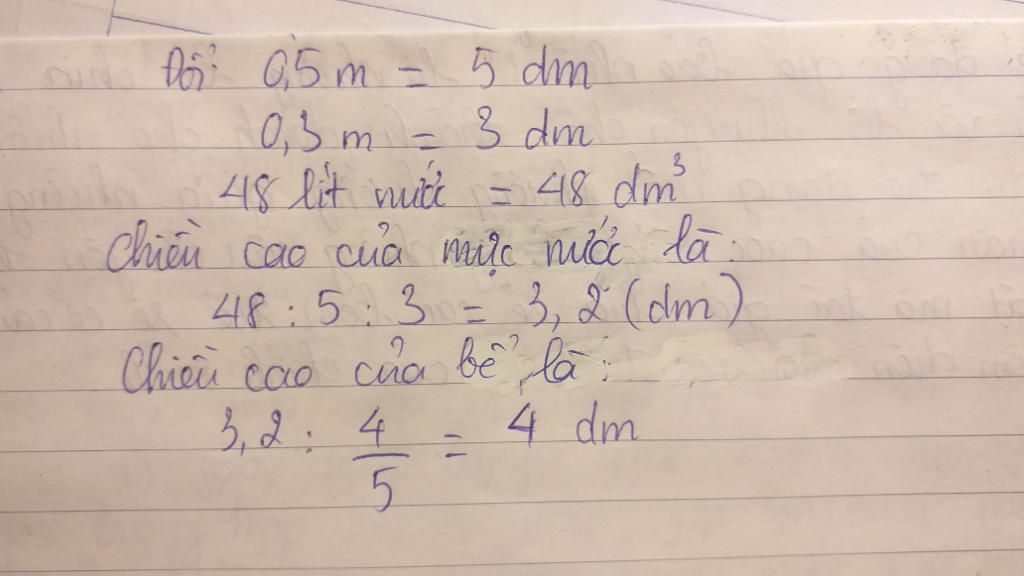 Đổi 0,5 m = 5 dm
0,3 m = 3 dm
48 lít nước = 48 dm³
Chiều cao của mực nước là:
48 : 5 : 3 = 3,2 (dm)
Chiều cao của bể là:
3,2 : 4/5 = 4 dm